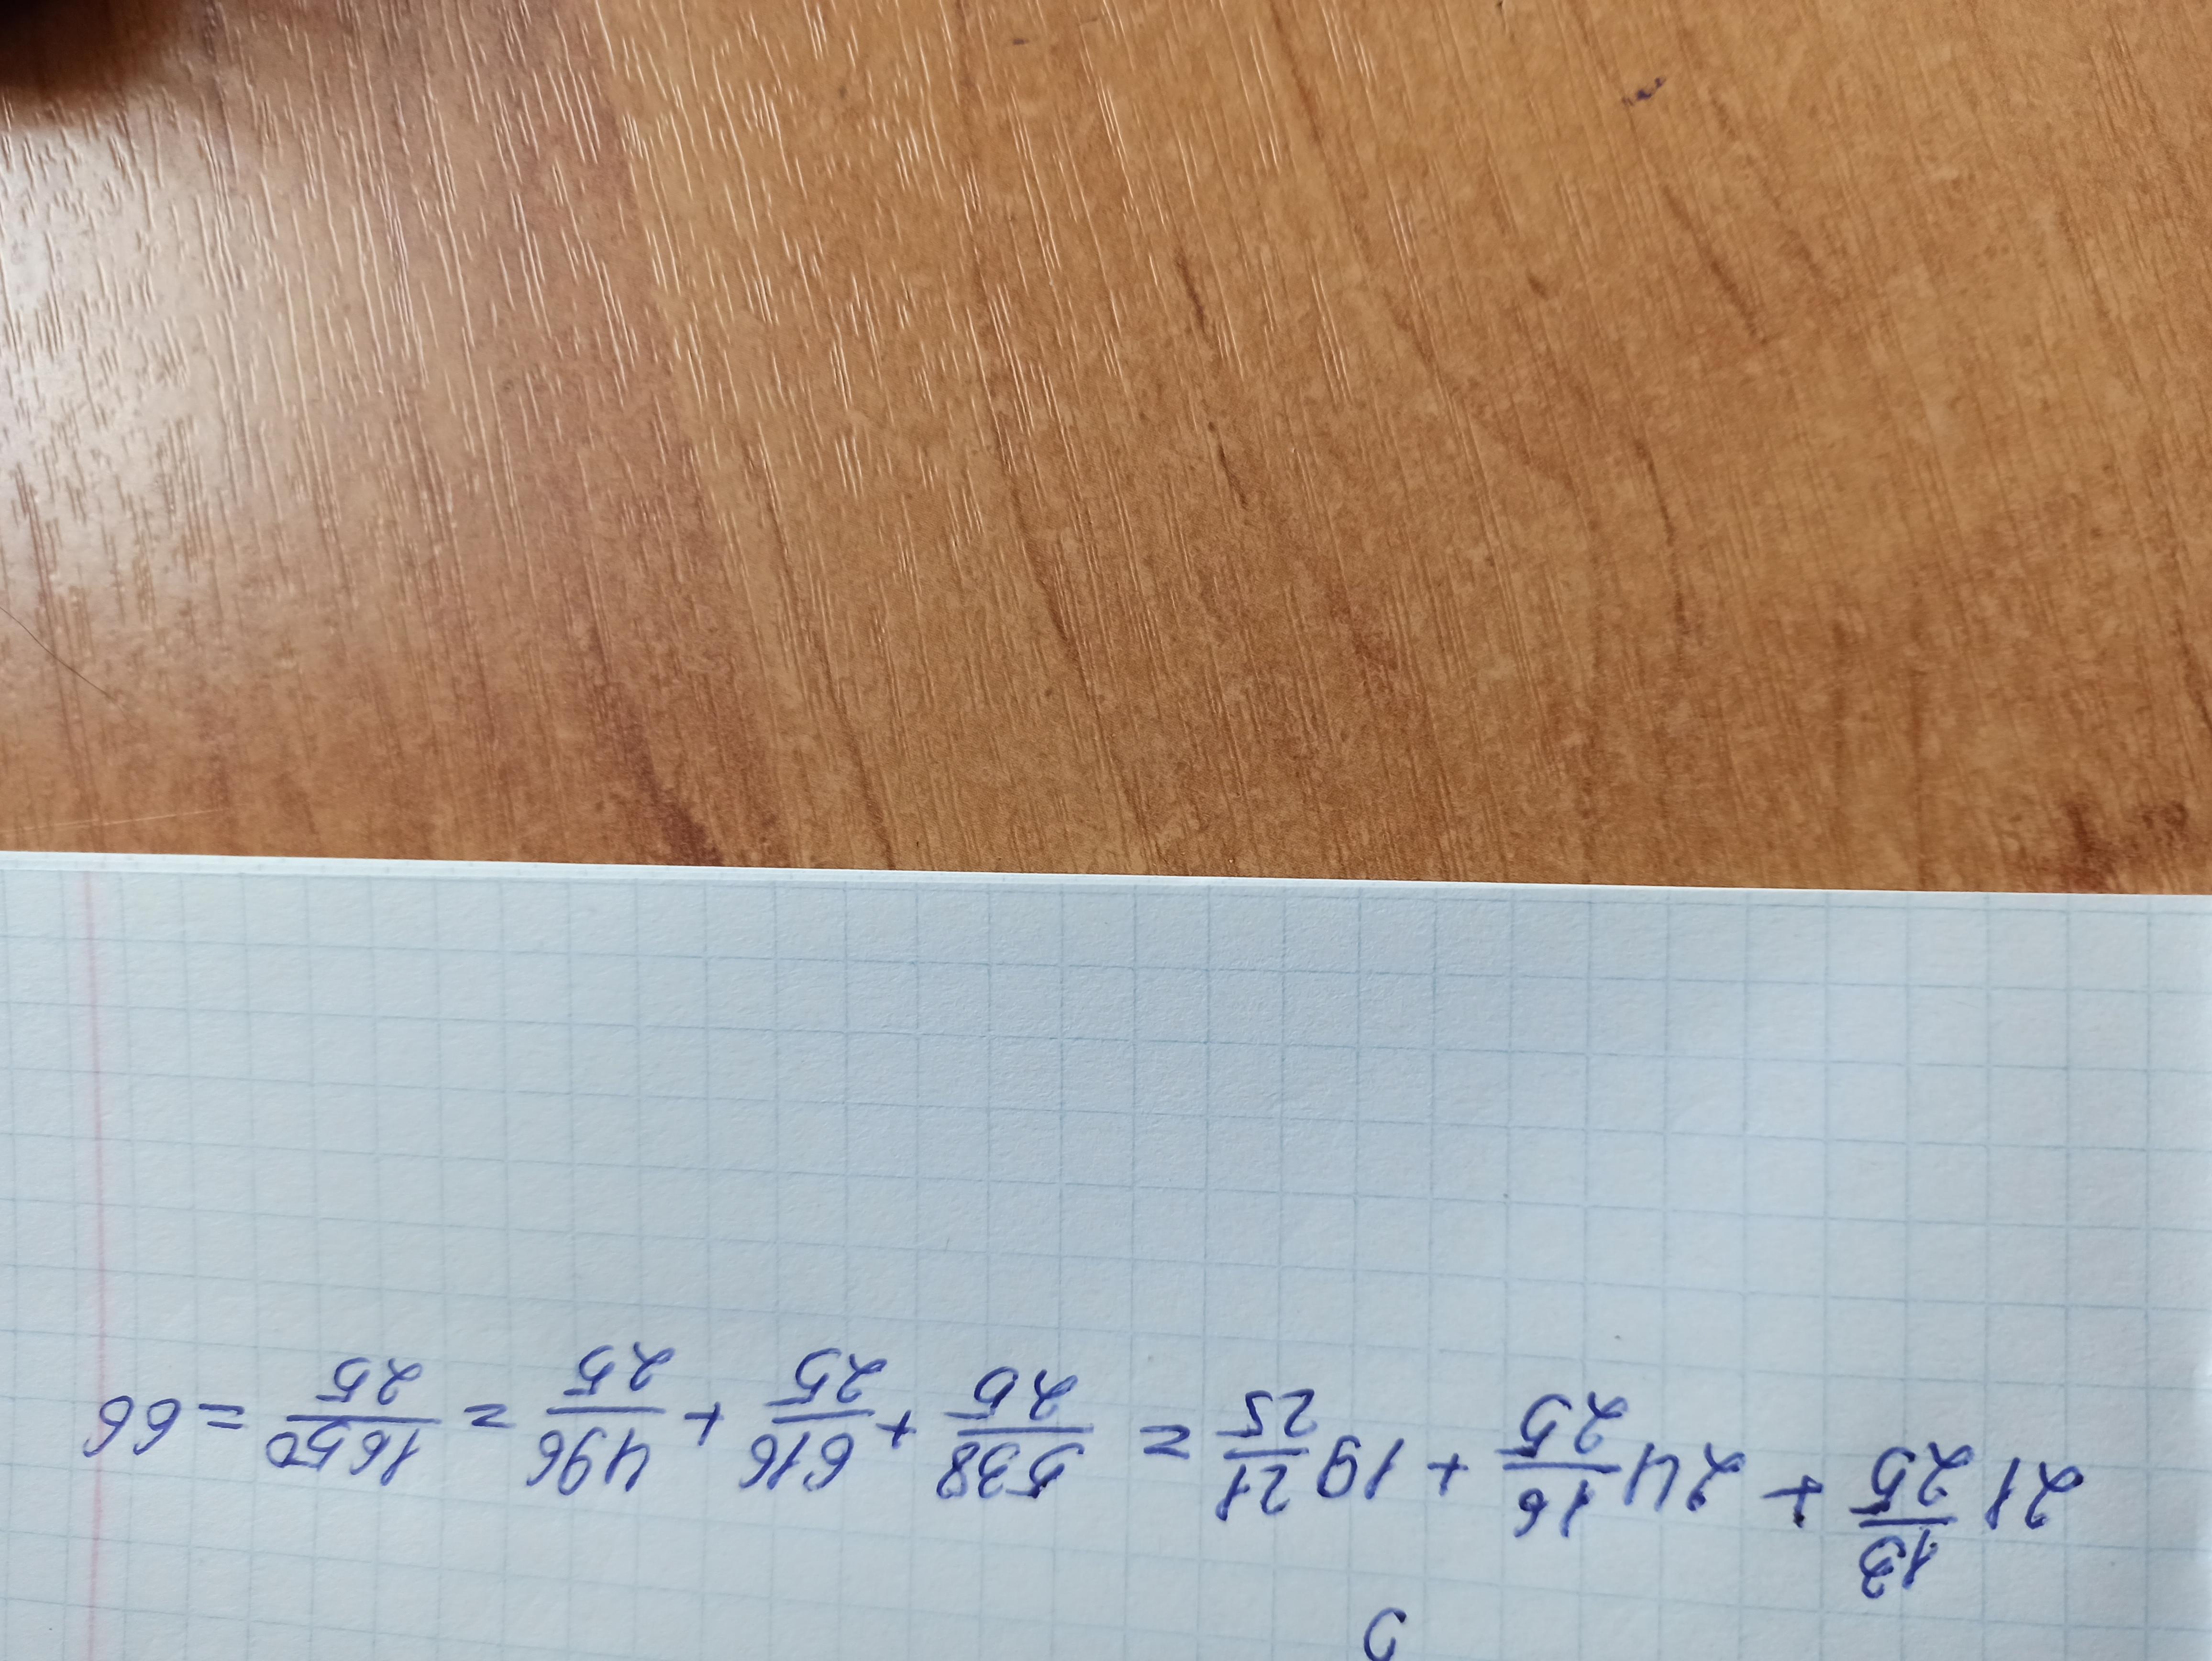 21 13/25 + 24 16/25 + 19 21/25 = 538/25 + 616/25 + 496/25 = 1650/25 = 66